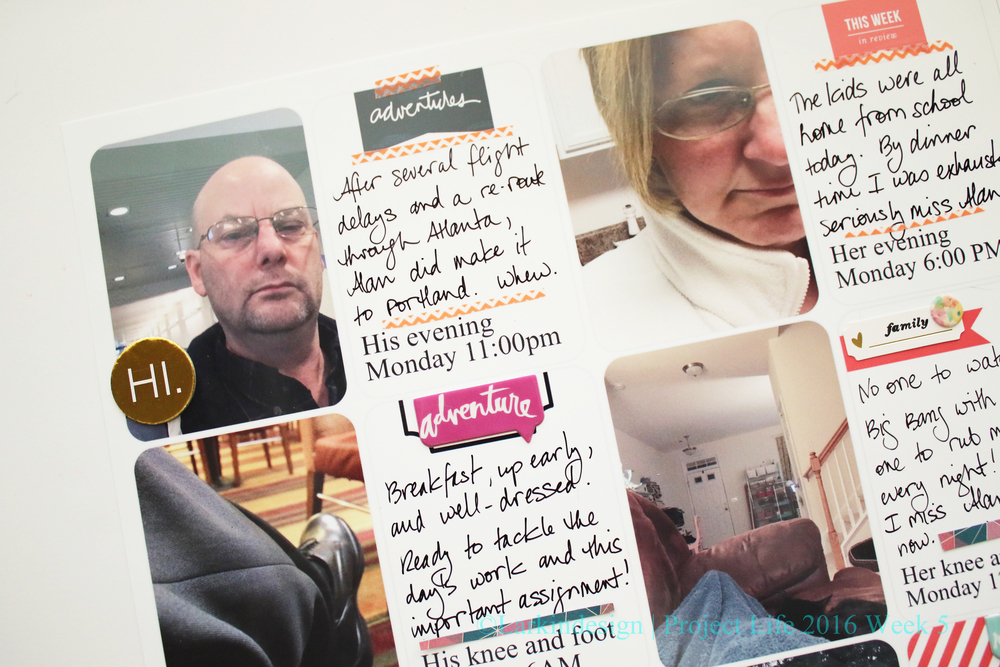 THIS WEEK
in review
adventures
After several flight
delays and a re-route
through Atlanta,
Alan did make it
to Portland. Whew.
His evening
Monday 11:00pm
HI.
The kids were all
home from school
today. By dinner
time I was exhaust
seriously miss Alan
Her evening
Monday 6:00 PM
adventure
Breakfast, up early,
and well-dressed.
Ready to tackle the
day's work and this
important assignment!
His knee and foot
AM
family
No one to wat
Big Bang with
one to rub m
every night!
I miss Alan
now.
Her knee a
Monday 1
©Larkindesign | Project Life 2016 Week 5